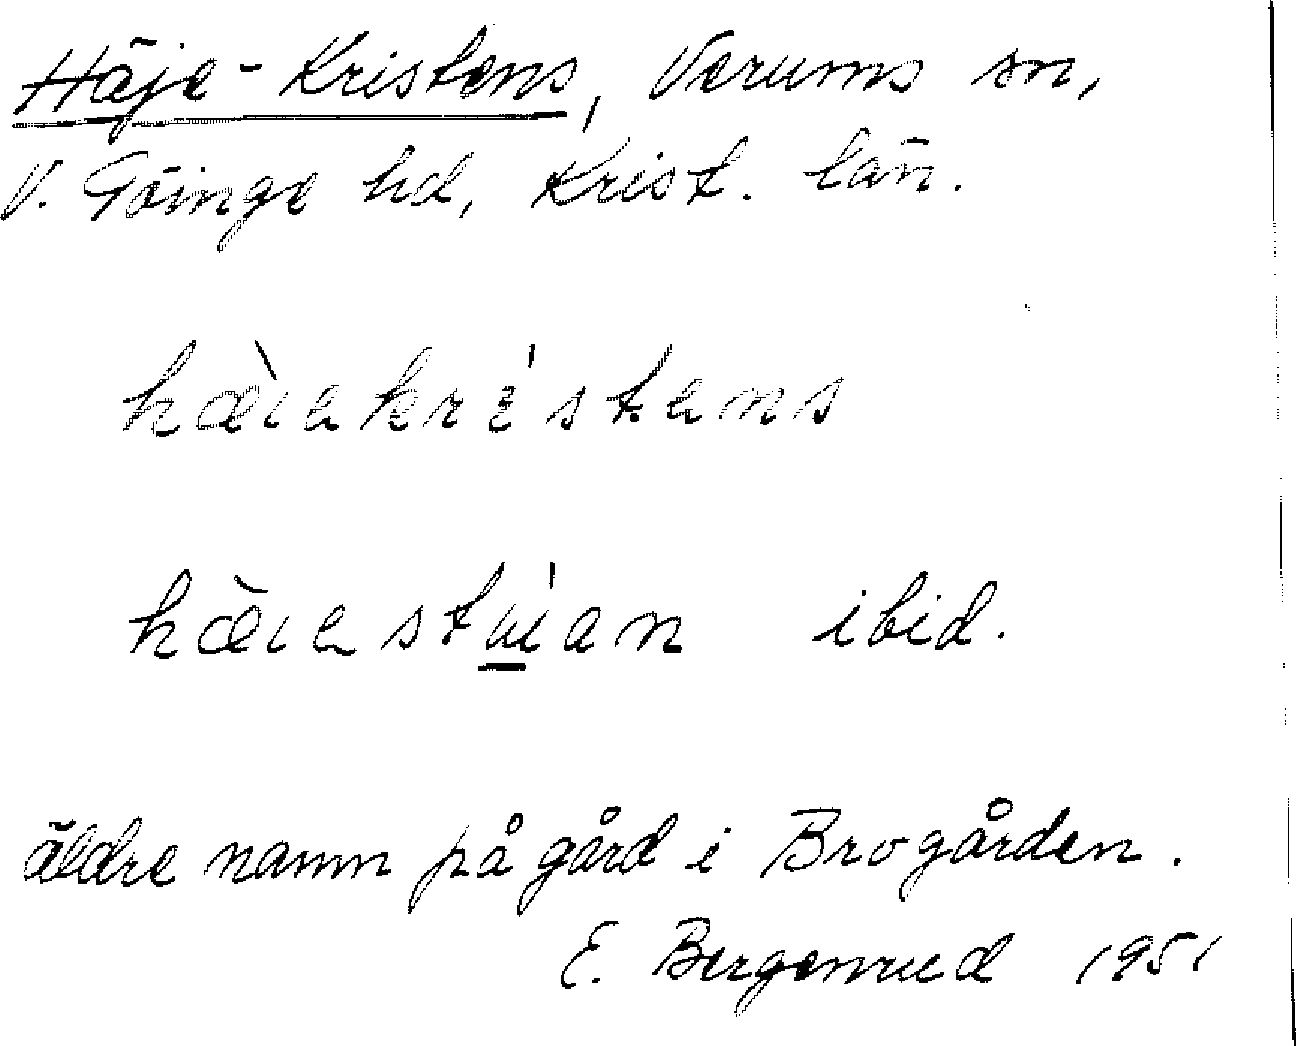 Häje-Kristens, Verums sn,
V. Göinge hd, Krist. län.
hæ̀ıakrɛ́stans
hæ̀ıast ibid.
äldre namn på gård i Brogården.
E. Bergenrud 1951